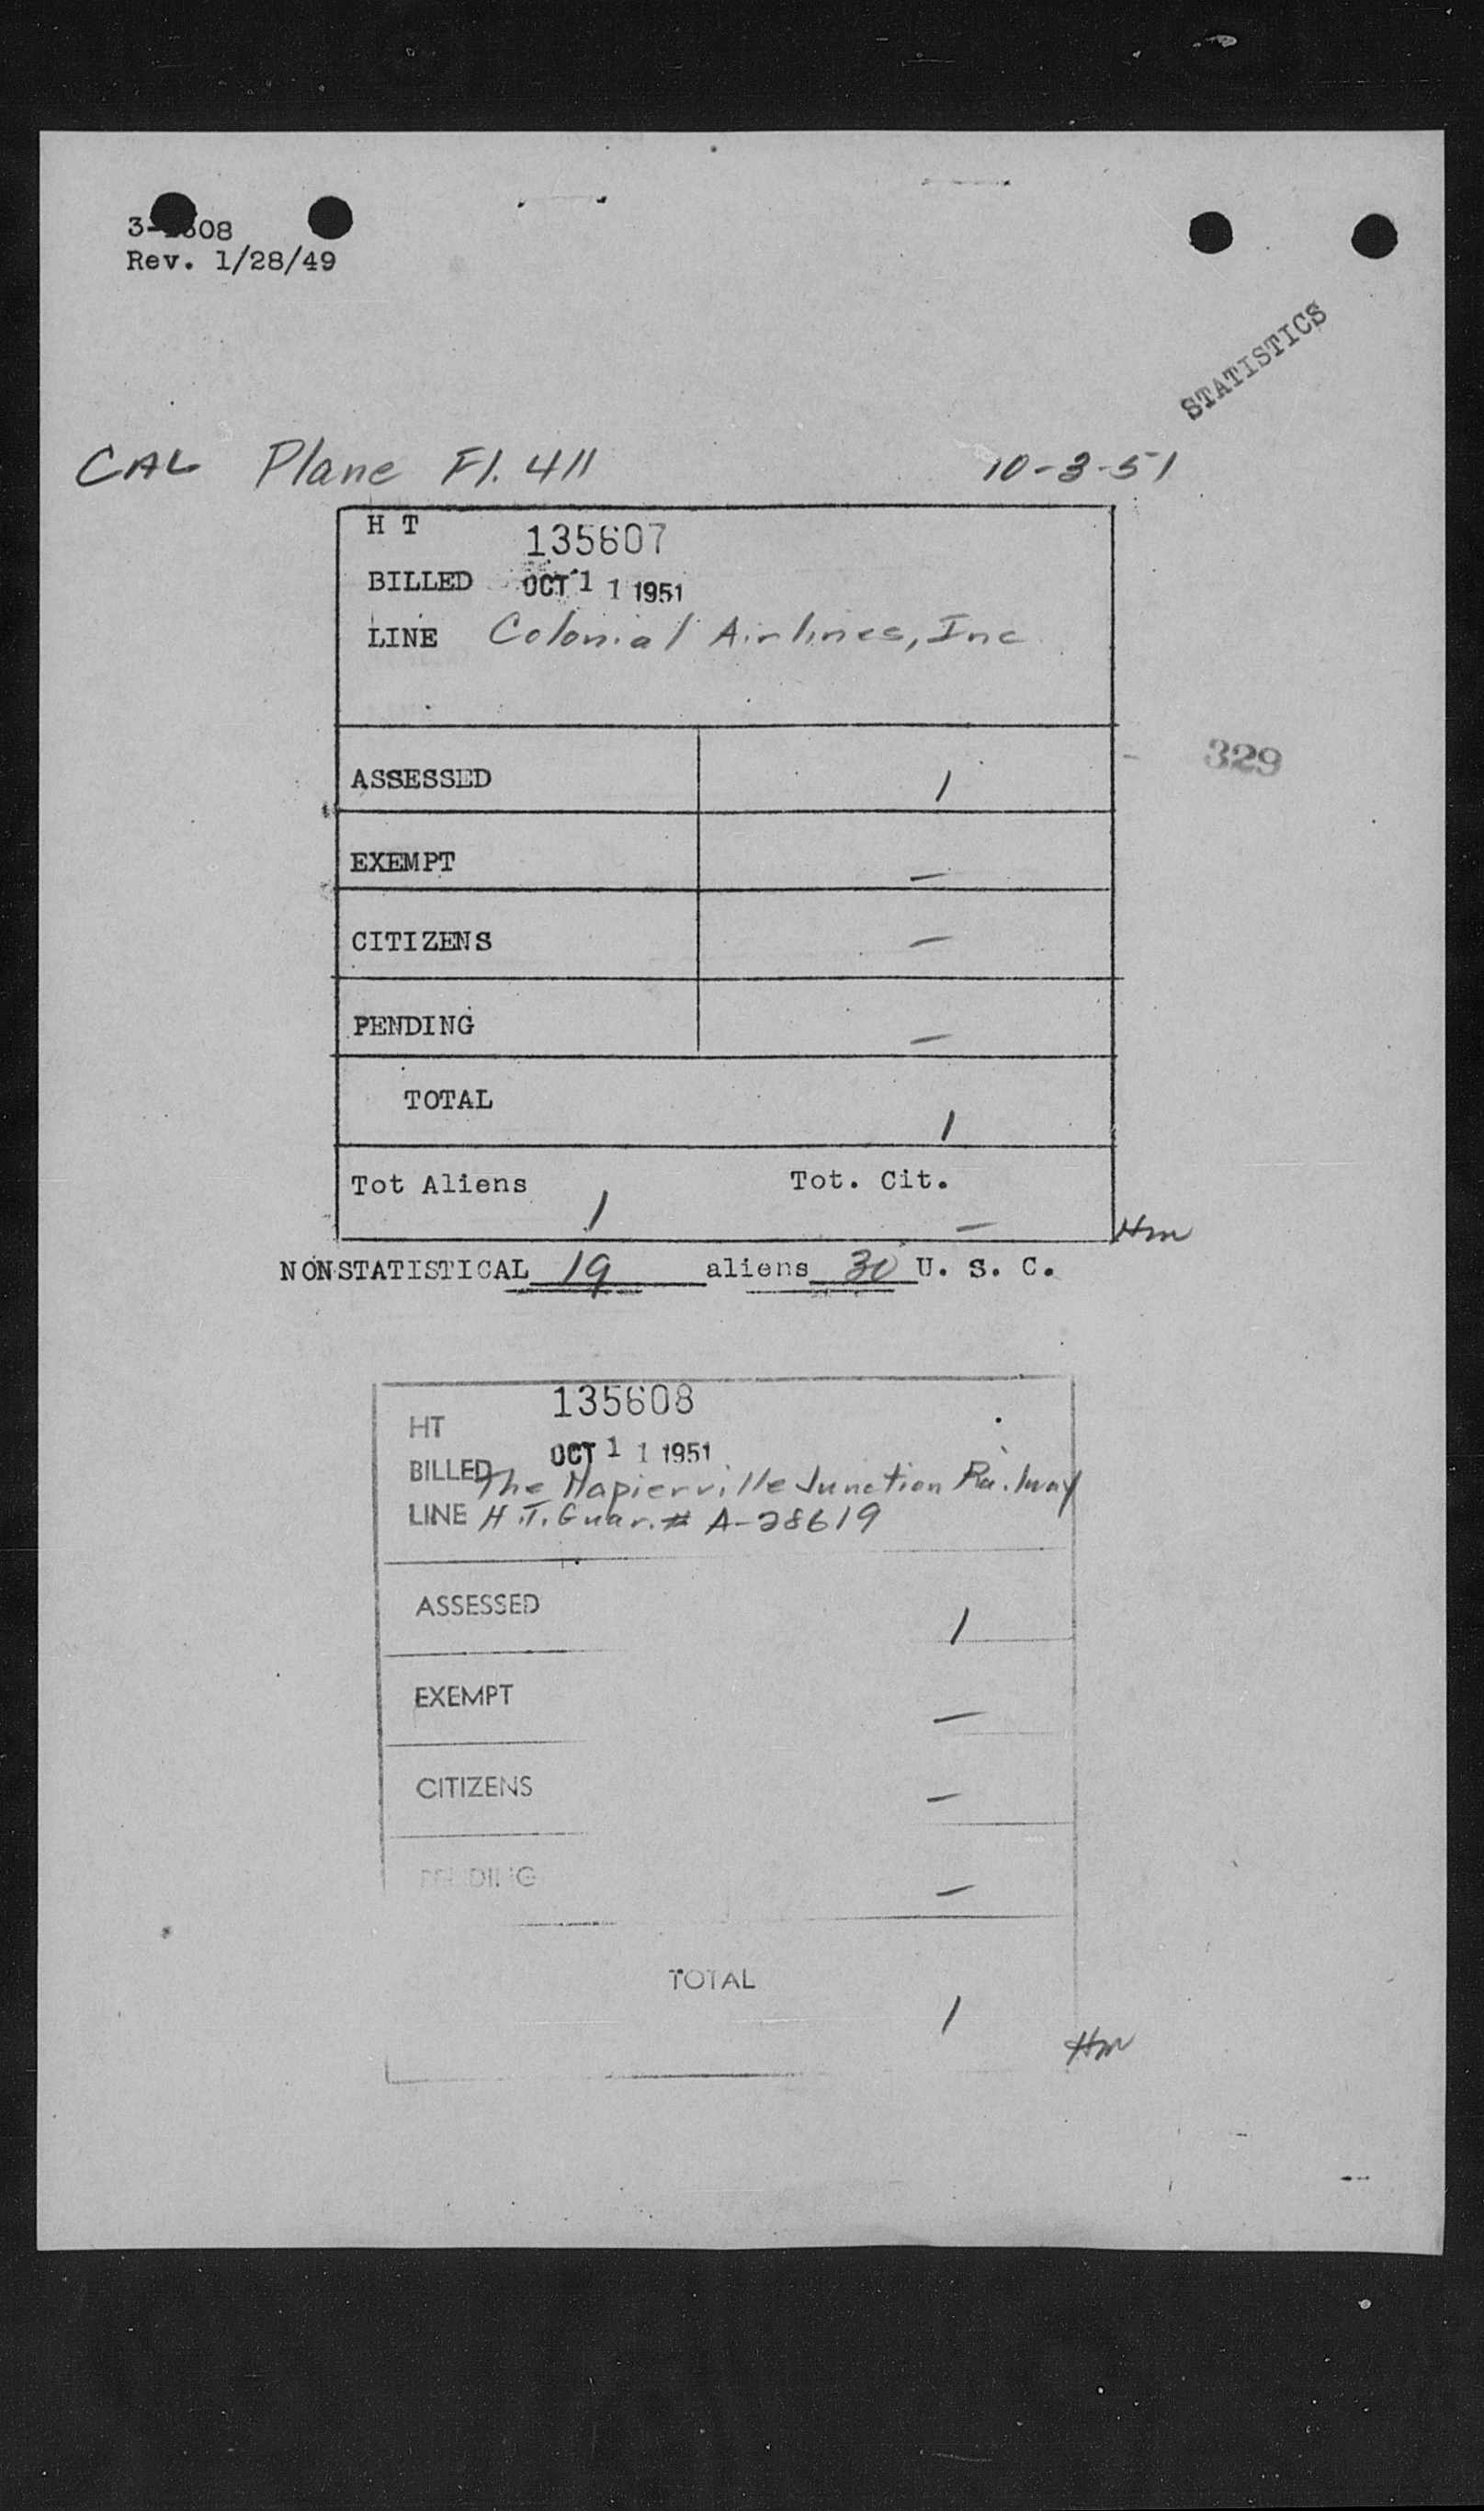 Rev. 1/28/49
STATISTICS
CAL Plane Fl. 411 10-3-51
H T 135607
BILLED OCT 1 1 1951
LINE Colonial Airlines, Inc
329
ASSESSED 1
EXEMPT —
CITIZENS —
PENDING —
TOTAL 1
Tot Aliens 1 Tot. Cit. —
Hm
NONSTATISTICAL 19 aliens 30 U. S. C.
135608
HT
BILLED OCT 1 1 1951
The Napierville Junction Railway
LINE H.T. Guar. # A-28619
ASSESSED 1
EXEMPT —
CITIZENS —
PENDING —
TOTAL
1
Hm